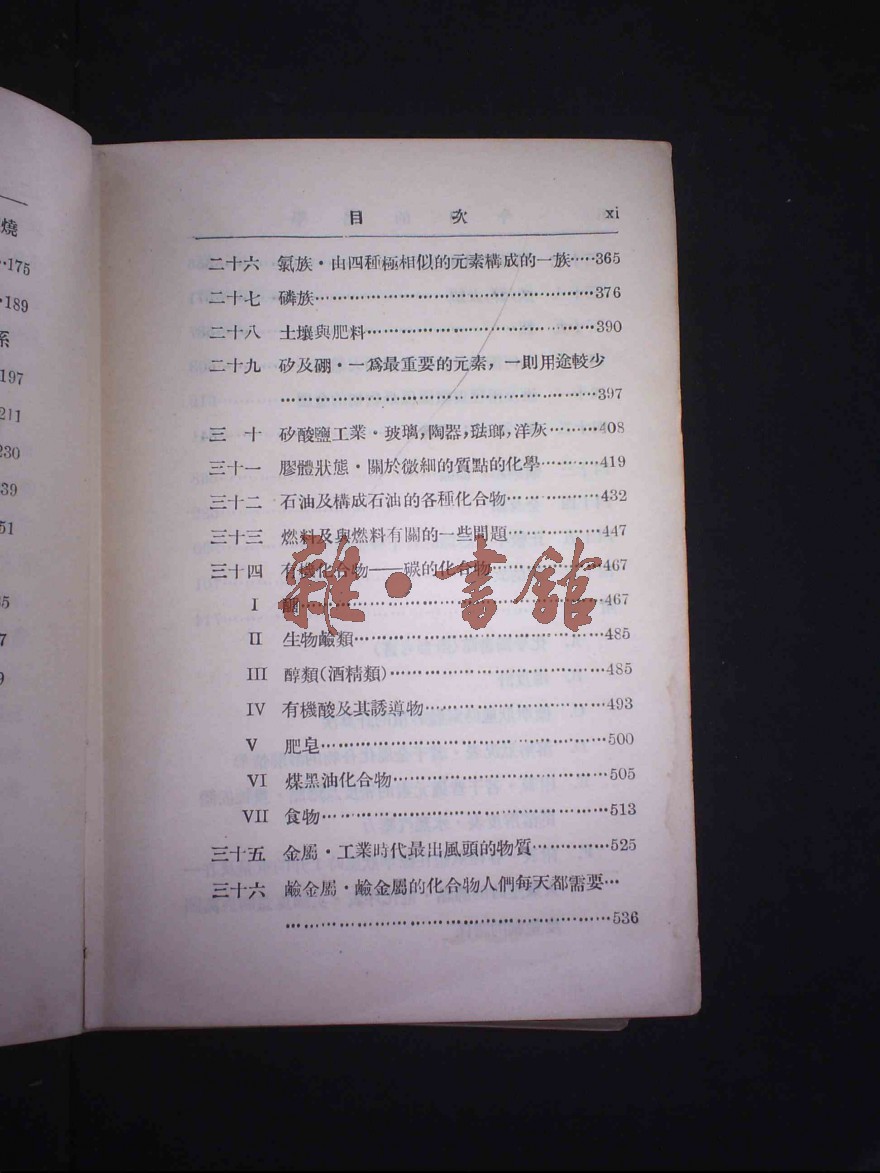 燒
175
189
系
197
211
230
39
51
5
7
9
目 次 xi
二十六 氯族・由四種極相似的元素構成的一族……365
二十七 磷族……376
二十八 土壤與肥料……390
二十九 矽及硼・一爲最重要的元素，一則用途較少
……397
三 十 矽酸鹽工業・玻璃，陶器，琺瑯，洋灰……408
三十一 膠體狀態・關於微細的質點的化學……419
三十二 石油及構成石油的各種化合物……432
三十三 燃料及與燃料有關的一些問題……447
三十四 有機化合物——碳的化合物……467
I ……467
II 生物鹼類……485
III 醇類(酒精類)……485
IV 有機酸及其誘導物……493
V 肥皂……500
VI 煤黑油化合物……505
VII 食物……513
三十五 金屬・工業時代最出風頭的物質……525
三十六 鹼金屬・鹼金屬的化合物人們每天都需要…
……536
雜・書館